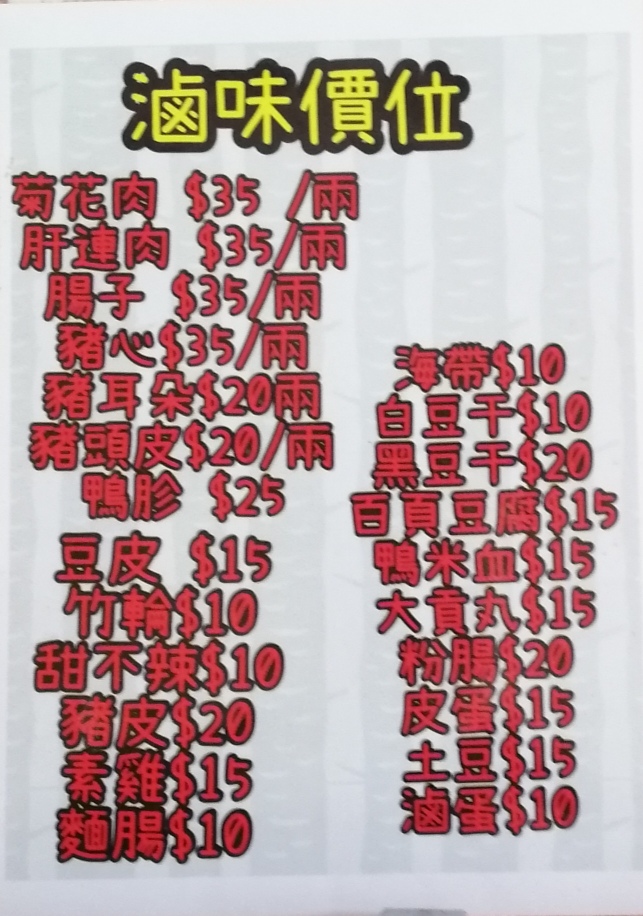 滷味價位
菊花肉 $35 /兩
肝連肉 $35/兩
腸子 $35/兩
豬心$35/兩
豬耳朵$20兩
豬頭皮$20/兩
鴨胗 $25
豆皮 $15
竹輪$10
甜不辣$10
豬皮$20
素雞$15
麵腸$10
海帶$10
白豆干$10
黑豆干$20
百頁豆腐$15
鴨米血$15
大貢丸$15
粉腸$20
皮蛋$15
土豆$15
滷蛋$10